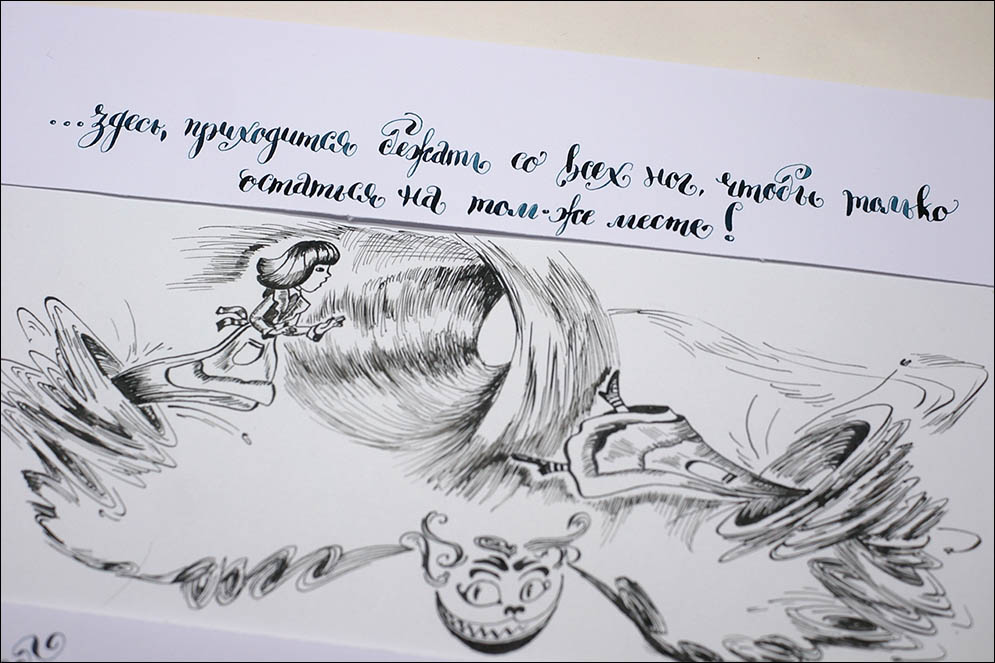 ...здесь, приходится бежать со всех ног, чтобы только
остаться на том-же месте!